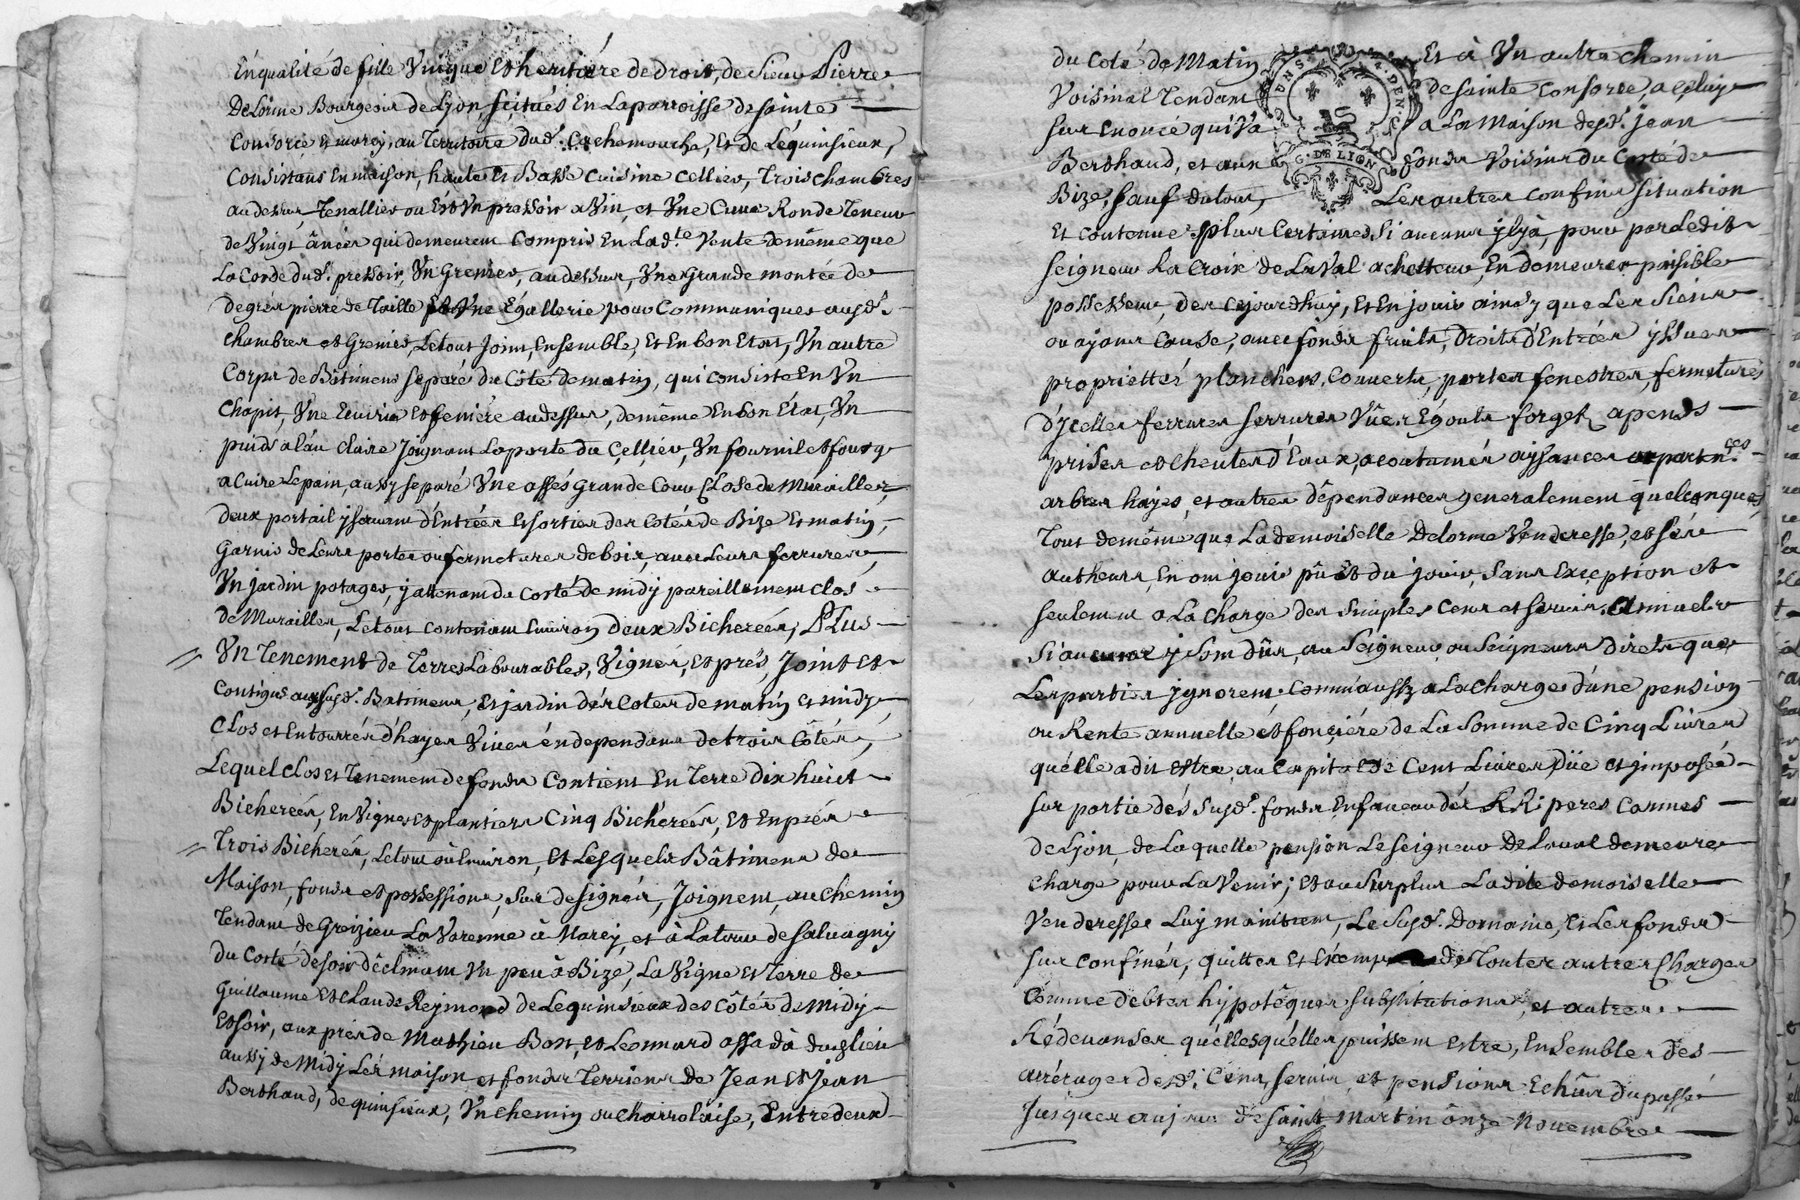 Enqualité de fille Vnique Et heritiére de droit, de Sieur Pierre
DeLorme Bourgeois de Lyon, scitués En La parroisse de sainte
Consorce et marcy, au Territoire dud. Crechemouche, Et de Léquinsieux,
Consistans En maison, haute Et Basse Cuisine Cellier, Trois chambres
au dessus, Tenallier ou Est Vn pressoir a Vin, et Vne Cuue Ronde Teneur
de Vingt ânées qui demeurent Compris En Lad.te Vente demême que
La Corde dud. pressoir, Vn Grenier, au dessus, Vne Grande montée de
degres pierre de Taille Et Vne Egallerie pour Communiquer ausd.
Chambres et Grenier, Letout Joint, Ensemble, Et En bon Etat, Vn autre
Corps de Bâtimens separé du Côté de matin, qui Consiste En Vn
Chapit, Vne Ecurie Et feniére au dessus, demême En bon Etat, Vn
puids a l'eau Claire Joignant La porte du Cellier, Vn fournil et four
a Cuire Le pain, aussy separé Vne assés Grande Cour CLose de Murailles,
deux portail y seruant d'Entrées Et sorties des Cotés de Bize Et matin,
Garnis de Leurs portes ou fermetures de bois, auec Leurs ferrures,
Vn jardin potager, y attenant du Costé de midy pareillement clos
de Murailles, Letout Contenant Enuiron deux Bicherées, PLus
Vn Tenement de Terres Labourables, Vignes, et prés, Joint et
Contigus aux susd. Batimens, Et jardin dés Cotes de matin et midy,
CLos et Entourrés d'hayes Viues éndependans de trois Côtés,
Lequel clos et Tenement de fonds Contient En Terre dix huict
Bicherées, En Vignes et plantiers Cinq Bicherées, Et En prés
Trois Bicherés, Letout où Enuiron, Et Lesquels Bâtimens de
Maison, fonds et possessions, sus designés, Joignent, au Chemin
Tendant de Greizieu La Varenne à Marcy, et à La tour de Saluagny
du Costé de soir déclinant Vn peu à Bize, La Vigne Et Terre de
Guillaume Et Claude Reymond de Lequinsieux des Côtés de Midy
Et soir, aux prés de Mathieu Bost, et Léonnard assada dudlieu
aussy de Midy Lés maison et fonds Terriens de Jean Et Jean
Berthaud, de quinsieux, Vn Chemin ou Charrolaise, Entre deux
du Coté de Matin Et à Vn autre Chemin
Voisinal Tendant de sainte Consorce, a Celuy
sur Enoncé qui Va a La Maison desd. Jean
Berthaud, et aux fonds Voisins du Costé de
Bize, sauf dutout, Les autres Confins situation
Et Contenue plus Certaines, si aucuns y a, pour par Ledit
seigneur La Croix de LaVal achetteur, En demeurer paisible
possesseur, dés Cejourdhuy, Et En jouir ainsy que Les Siens
ou ayans Cause, auec fonds fruits, droits d'Entrées yssues
proprietés planchers, Couuerts, portes fenestres, fermetures
d'ycelles ferrures serrures Vûes Egouts forget, apends
prises et cheutes d'Eaux, acoutumés aysances apartn.ces
arbres hayes, et autres dépendances generalement quelconques
Tout demême que La demoiselle Delorme Venderesse, et ses
autheurs, En ont joui pû et du jouir, sans Exception et
seulement a La Charge des simples Cens et seruis, Annuels
Si aucuns y sont dûs, au Seigneur, ou Seigneurs direts que
Les parties ygnorent, Comm'aussy a La Charge d'une pension
ou Rente annuelle et fonçiére de La Somme de Cinq Liures
qu'elle a dit estre, au Capital de Cent Liures dûe et imposée
sur partie dés susd. fonds En faueur dés RR: peres Carmes
de Lyon, de Laquelle pension Le seigneur De Laual demeure
Charge pour La Venir; Et au surplus Ladite demoiselle
Venderesse Luy maintient, Le susd. Domaine, Et Les fonds
sus Confinés, quittes Et Exempts de Toutes autres Charges
Comme debtes hypotêques substitutions, et autres
Rédeuances quélles quélles puissent estre, Ensembles des
arrérages desd. Cens, seruis, et pensions Echûs du passé
Jusques au jour de saint Martin ônze Nouembre
G. DE LION